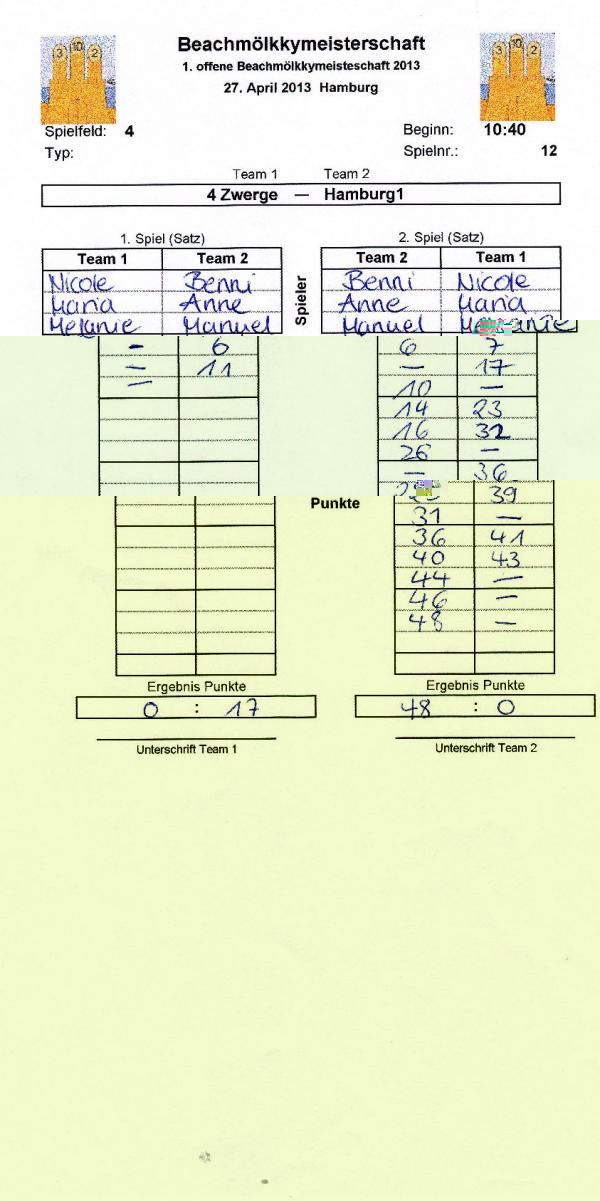 3 10 2
3 10 2
Beachmölkkymeisterschaft
1. offene Beachmölkkymeisteschaft 2013
27. April 2013 Hamburg
Spielfeld: 4 Beginn: 10:40
Typ: Spielnr.: 12
Team 1 Team 2
4 Zwerge — Hamburg1
1. Spiel (Satz) 2. Spiel (Satz)
Team 1 Team 2 Team 2 Team 1
Spieler
Nicole Benni Benni Nicole
Maria Anne Anne Maria
Melanie Manuel Manuel
- 6 6 7
- 11 - 17
- 10 -
14 23
16 32
26 -
- 36
39
Punkte
31 -
36 41
40 43
44 -
46 -
48 -
Ergebnis Punkte Ergebnis Punkte
0 : 17 48 : 0
Unterschrift Team 1 Unterschrift Team 2